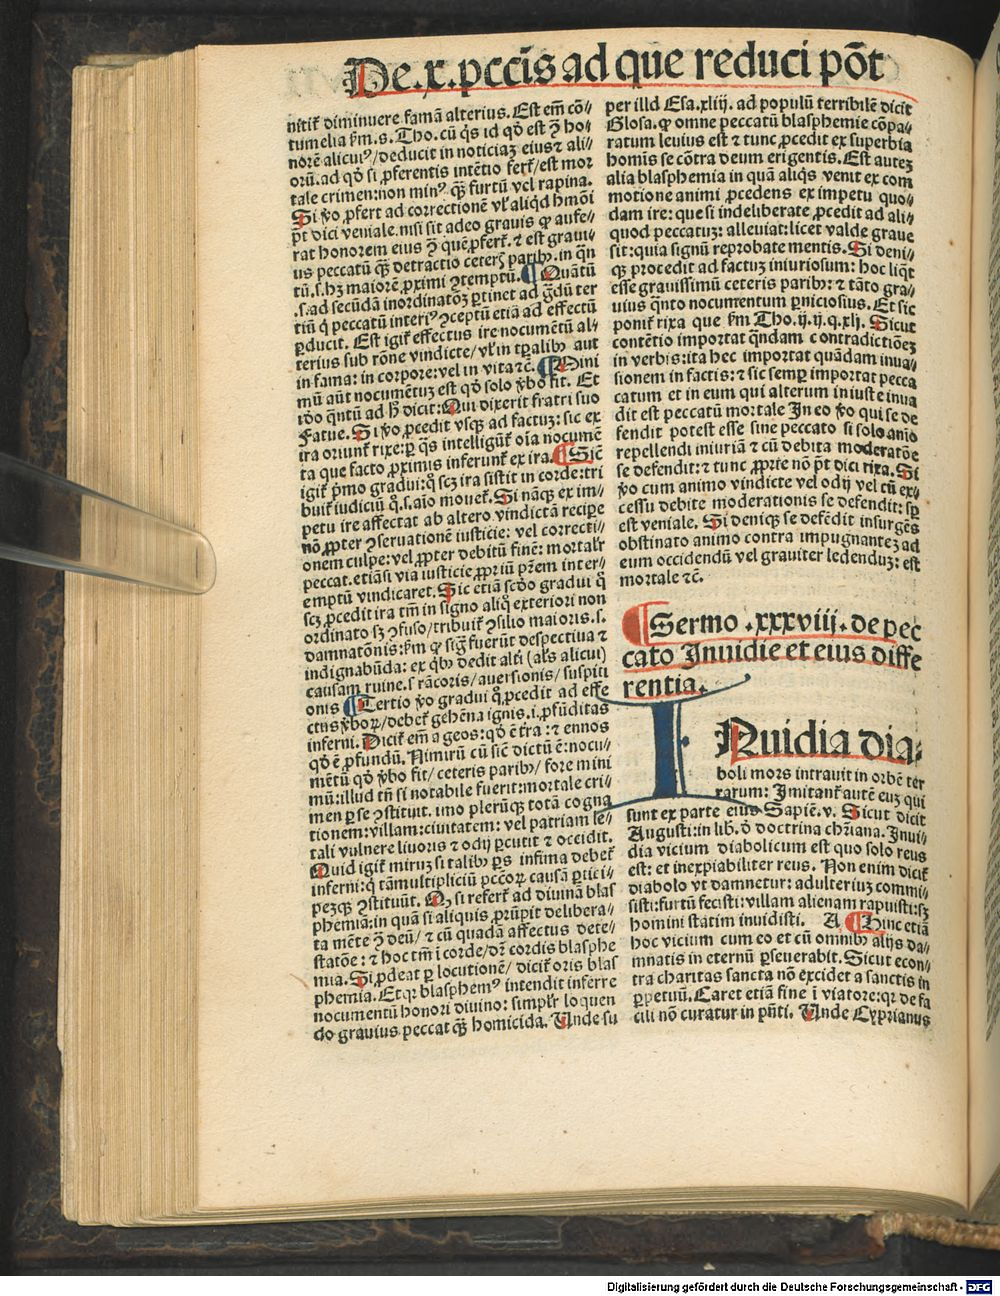 De.x.pccīs ad que reduci pōt
nitiť diminuere famā alterius. Est em̄ cō⸗
tumelia ẜm.s. Tho. cū q̄s id qḋ est ꝯ̄ ho⸗
nōrē alicuiꝰ/deducit in noticiaꝫ eius ⁊ ali⸗
orū. ad qḋ si ꝓferentis intētio ferť/est mor
tale crimen: non minꝰ qꝫ̄ furtū vel rapina.
Si ṽo ꝓfert ad correctionē vľ aliqd hmōi
p̄t dici veniale. nisi sit adeo grauis ꝙ aufe⸗
rat honorem eius ꝯ̄ quē ꝓferť. ⁊ est graui⸗
us peccatū qꝫ̄ detractio ceterꝭ paribꝰ. in q̄n
tū.s.hꝫ maiorē ꝓximi ꝯtemptū. ¶ Quātū
.s. ad secūdā inordinatōꝫ ꝑtinet ad ḡdū ter
tiū q̇ peccatū interiꝰ ꝯceptū etiā ad effectū
ꝑducit. Est igiť effectus ire nocumētū al⸗
terius sub rōne vindicte/vľ in tꝑalibꝰ aut
in fama: in corpore: vel in vita ⁊c̄. ¶ Mini
mū aūt nocumētuꝫ est qḋ solo ṽbo fit. Et
iō q̄ntū ad h̄ dicit: Qui dixerit fratri suo
Fatue. Si ṽo ꝓcedit vsqꝫ ad factuꝫ: sic ex
ira oriunť rixe: ꝑ q̄s intelligūť oīa nocumē
ta que facto ꝓximis inferunť ex ira. ¶ Sic̄
igiť pͥmo gradui: q̇ sꝫ ira sistit in corde: tri
buiť iudiciū q̇.s.aīo moueť. Si nāqꝫ ex im⸗
petu ire affectat ab altero vindictā reciꝑe
nō ꝓpter ꝯseruationē iusticie: vel correcti⸗
onem culpe: vel ꝓpter debitū finē: mortalr̄
peccat. etiāsi via iusticie ꝓpriū p̄rem inter⸗
emptū vindicaret. Sic etiā scḋo gradui q̇
scꝫ ꝓcedit ira tm̄ in signo aliq̇ exteriori non
ordinato sꝫ ꝯfuso/tribuiť ꝯsilio maioris.s.
damnatōnis: ẜm ꝙ sig̃ fuerūt despectiua ⁊
indignabūda: ex q̇bꝰ dedit alťi (al̄s alicui)
causam ruine.s rācoris/auersionis/suspiti
onis ¶ Tertio ṽo gradui q̇ ꝓcedit ad effe
ctus ṽboꝝ/debeť gehēna ignis.i.ꝓfūditas
inferni. Diciť em̄ a geos: qḋ ē tr̄a: ⁊ ennos
qḋ ē ꝓfundū. Nimirū cū sic̄ dictū ē: nocu⸗
mētū qḋ ṽbo fit/ceteris paribꝰ/fore mini
mū: illud tn̄ si notabile fuerit: mortale cri⸗
men ꝑ se ꝯstituit. imo plerūqꝫ totā cogna
tionem: villam: ciuitatem: vel patriam se⸗
tali vulnere liuoris ⁊ odij ꝑcutit ⁊ occidit.
Quid igiť miruꝫ si talibꝰ pꝑs infima debeť
inferni: q̇ tāmultipliciū pctōꝝ causā ꝑtici⸗
peꝫqꝫ ꝯstituūt. Qḋ si referť ad diuinā blas
phemia: in quā si aliquis ꝓrūpit delibera⸗
ta mēte ꝯ̄ deū/⁊ cū quadā affectus dete⸗
statōe: ⁊ hoc tm̄ ī corde/dr̄ cordis blasphe
mia. Si ꝓdeat ꝑ locutionē/diciť oris blas
phemia. Et qꝛ blasphemꝰ intendit inferre
nocumentū honori diuino: simplr̄ loquen
do grauius peccat qꝫ̄ homicida. Unde su
per illd Esa.xliij. ad populū terribilē dicit
Glosa. ꝙ omne peccatū blasphemie cōpa⸗
ratum leuius est ⁊ tunc ꝓcedit ex superbia
homīs se cōtra deum erigentis. Est auteꝫ
alia blasphemia in quā aliq̄s venit ex com
motione animi ꝓcedens ex impetu quo⸗
dam ire: que si indeliberate ꝓcedit ad ali⸗
quod peccatuꝫ: alleuiat: licet valde graue
sit: quia signū reprobate mentis. Si deni⸗
qꝫ procedit ad factuꝫ iniuriosum: hoc liq̄t
esse grauissimū ceteris paribꝰ: ⁊ tāto gra⸗
uius q̄nto nocumentum ꝑniciosius. Et sic
poniť rixa que ẜm Tho.ij.ij.q.xlj. Sicut
contētio importat q̄ndam contradictiōeꝫ
in verbis: ita hec importat quādam inua⸗
sionem in factis: ⁊ sic semꝑ importat pecca
catum et in eum qui alterum iniuste inua
dit est peccatū mortale In eo ṽo qui se de
fendit potest esse sine peccato si solo aīo
repellendi iniuriā ⁊ cū debita moderatōe
se defendit: ⁊ tunc ꝓprie nō p̄t dici rixa. Si
ṽo cum animo vindicte vel odij vel cū ex⸗
cessu debite moderationis se defendit: sꝑ
est veniale. Si deniqꝫ se defēdit insurgēs
obstinato animo contra impugnanteꝫ ad
eum occidendū vel grauiter ledenduꝫ: est
mortale ⁊c̄.
¶ Sermo .xxxviij. de pec
cato Inuidie et eius diffe
rentia.
INuidia dia⸗
boli mors intrauit in orbē ter
rarum: Imitanť autē euꝫ qui
sunt ex parte eius Sapiē.v. Sicut dicit
Augusti: in lib. ḋ doctrina chr̄iana. Inui⸗
dia vicium diabolicum est quo solo reus
est: et inexpiabiliter reus. Non enim diciť
diabolo vt damnetur: adulteriuꝫ commi⸗
sisti: furtū fecisti: villam alienam rapuisti: sꝫ
homini statim inuidisti. A ¶ Hinc etiā
hoc vicium cum eo et cū omnibꝰ alijs da⸗
mnatis in eternū ꝑseuerabit. Sicut econ⸗
tra charitas sancta nō excidet a sanctis in
ꝑpetuū. Caret etiā fine ī viatore: qꝛ de fa
cili nō curatur in pn̄ti. Unde Cyprianus
Digitalisierung gefördert durch die Deutsche Forschungsgemeinschaft - DFG